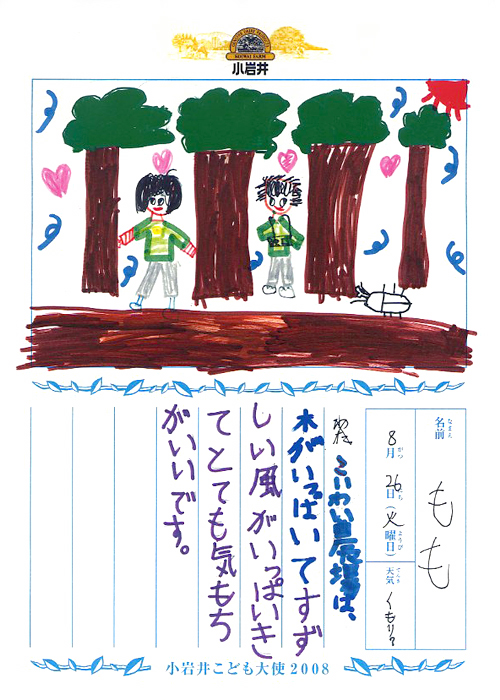 KOIWAI FARM
小岩井
名前 もも
なまえ
8月26日(火曜日)
がつ ようび
天気 くもり?
てんき
こいわい農場は、
木がいっぱいてすず
しい風がいっぱいき
てとても気もち
がいいです。
小岩井こども大使2008